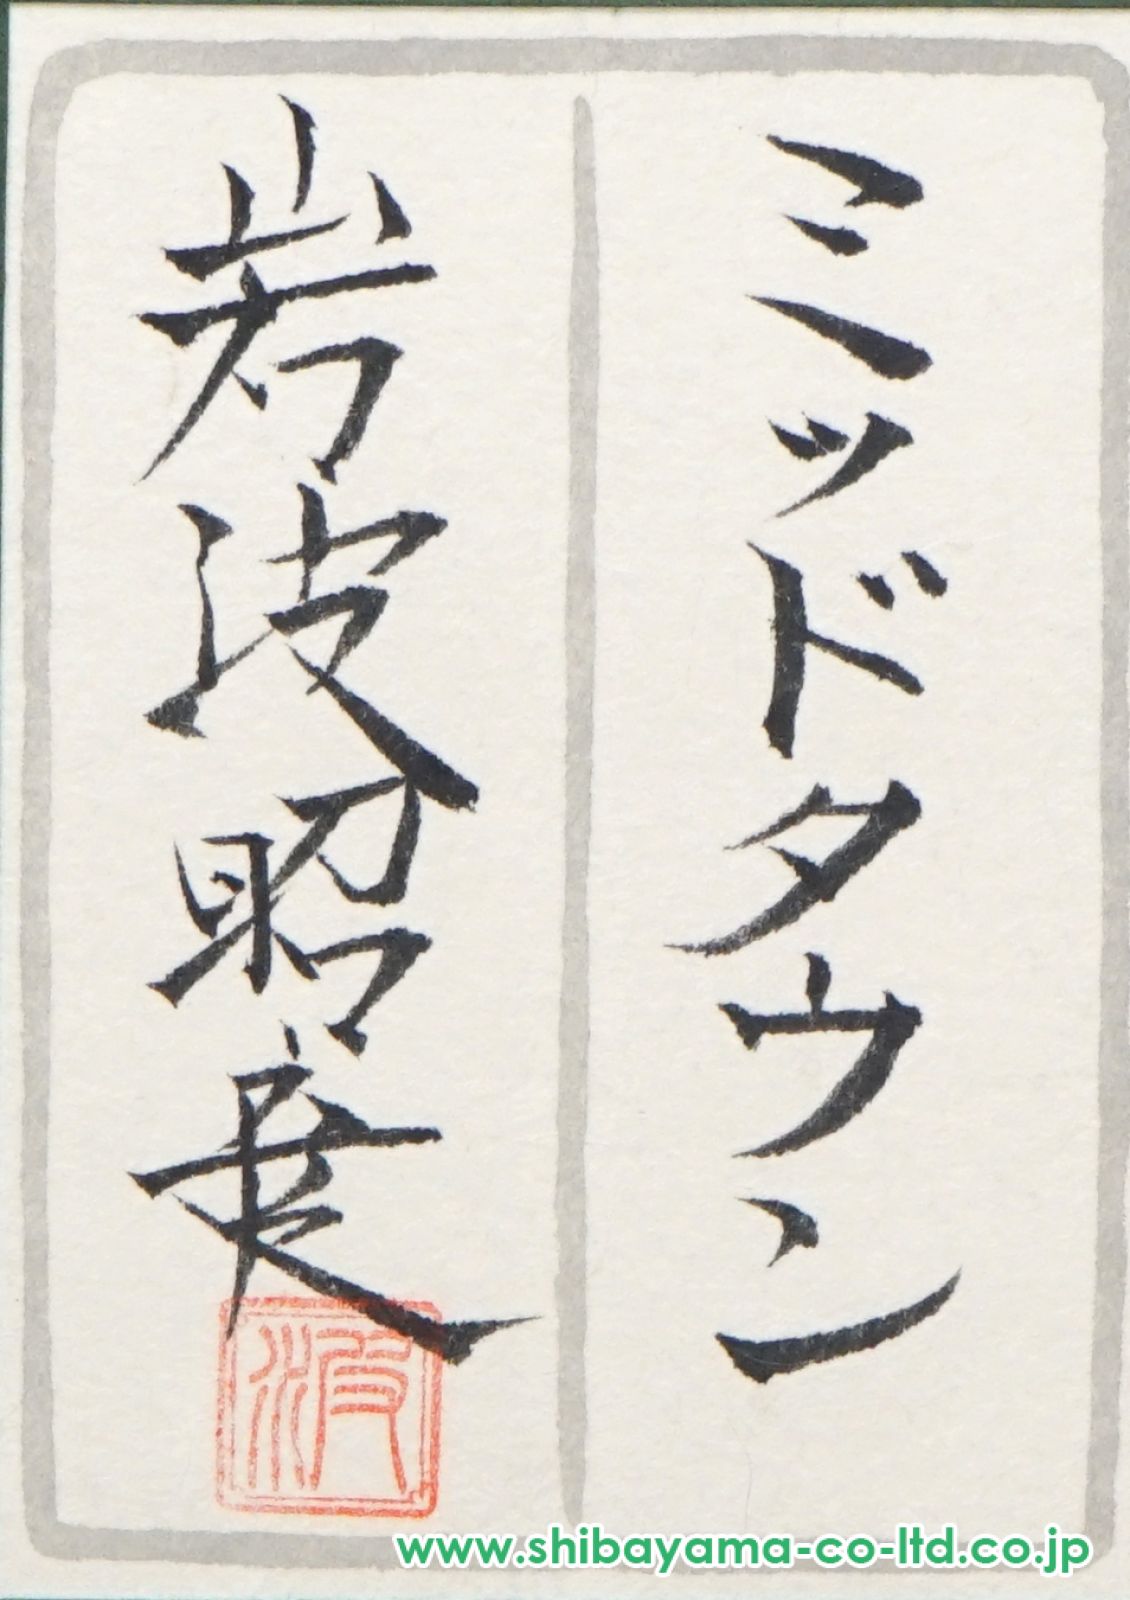 ミッドタウン
岩波昭彦
波
www.shibayama-co-ltd.co.jp